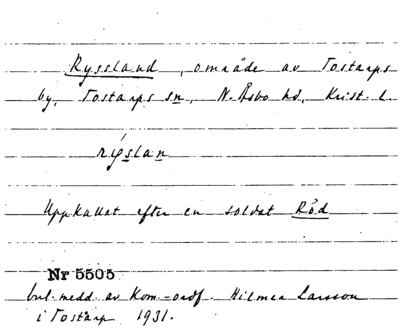 Ryssland, område av Tostarps
by, Tostarps sn, N. Åsbo hd, Krist. l.
rýslan
Uppkallat efter en soldat Röd
Nr 5505
enl. medd. av Kom-ordf. Hilmer Larsson
i Tostarp 1931.